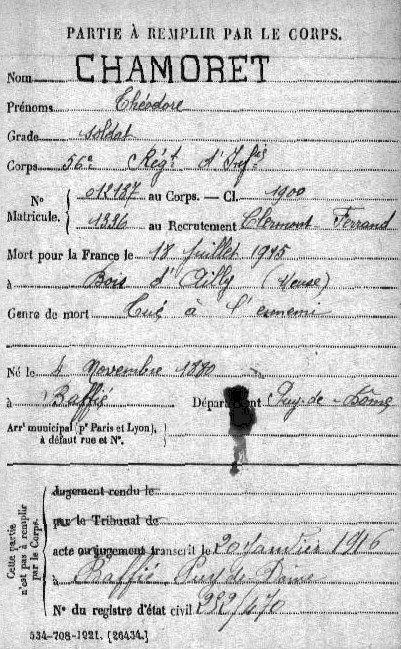 PARTIE À REMPLIR PAR LE CORPS.
Nom CHAMORET
Prénoms Théodore
Grade soldat
Corps 56e Régt d'Infie
N° 012137 au Corps. — Cl. 1900
Matricule. 1336 au Recrutement Clermont-Ferrand
Mort pour la France le 18 juillet 1915
à Bois d'Ailly (Meuse)
Genre de mort Tué à l'ennemi
Né le 4 Novembre 1880
à Baffie Département Puy-de-Dôme
Arrt municipal (pr Paris et Lyon),
à défaut rue et N°.
Cette partie
n'est pas à remplir
par le Corps.
Jugement rendu le
par le Tribunal de
acte ou jugement transcrit le 20 Janvier 1916
à Baffie Puy de Dôme
N° du registre d'état civil
534-708-1921. [26434.]